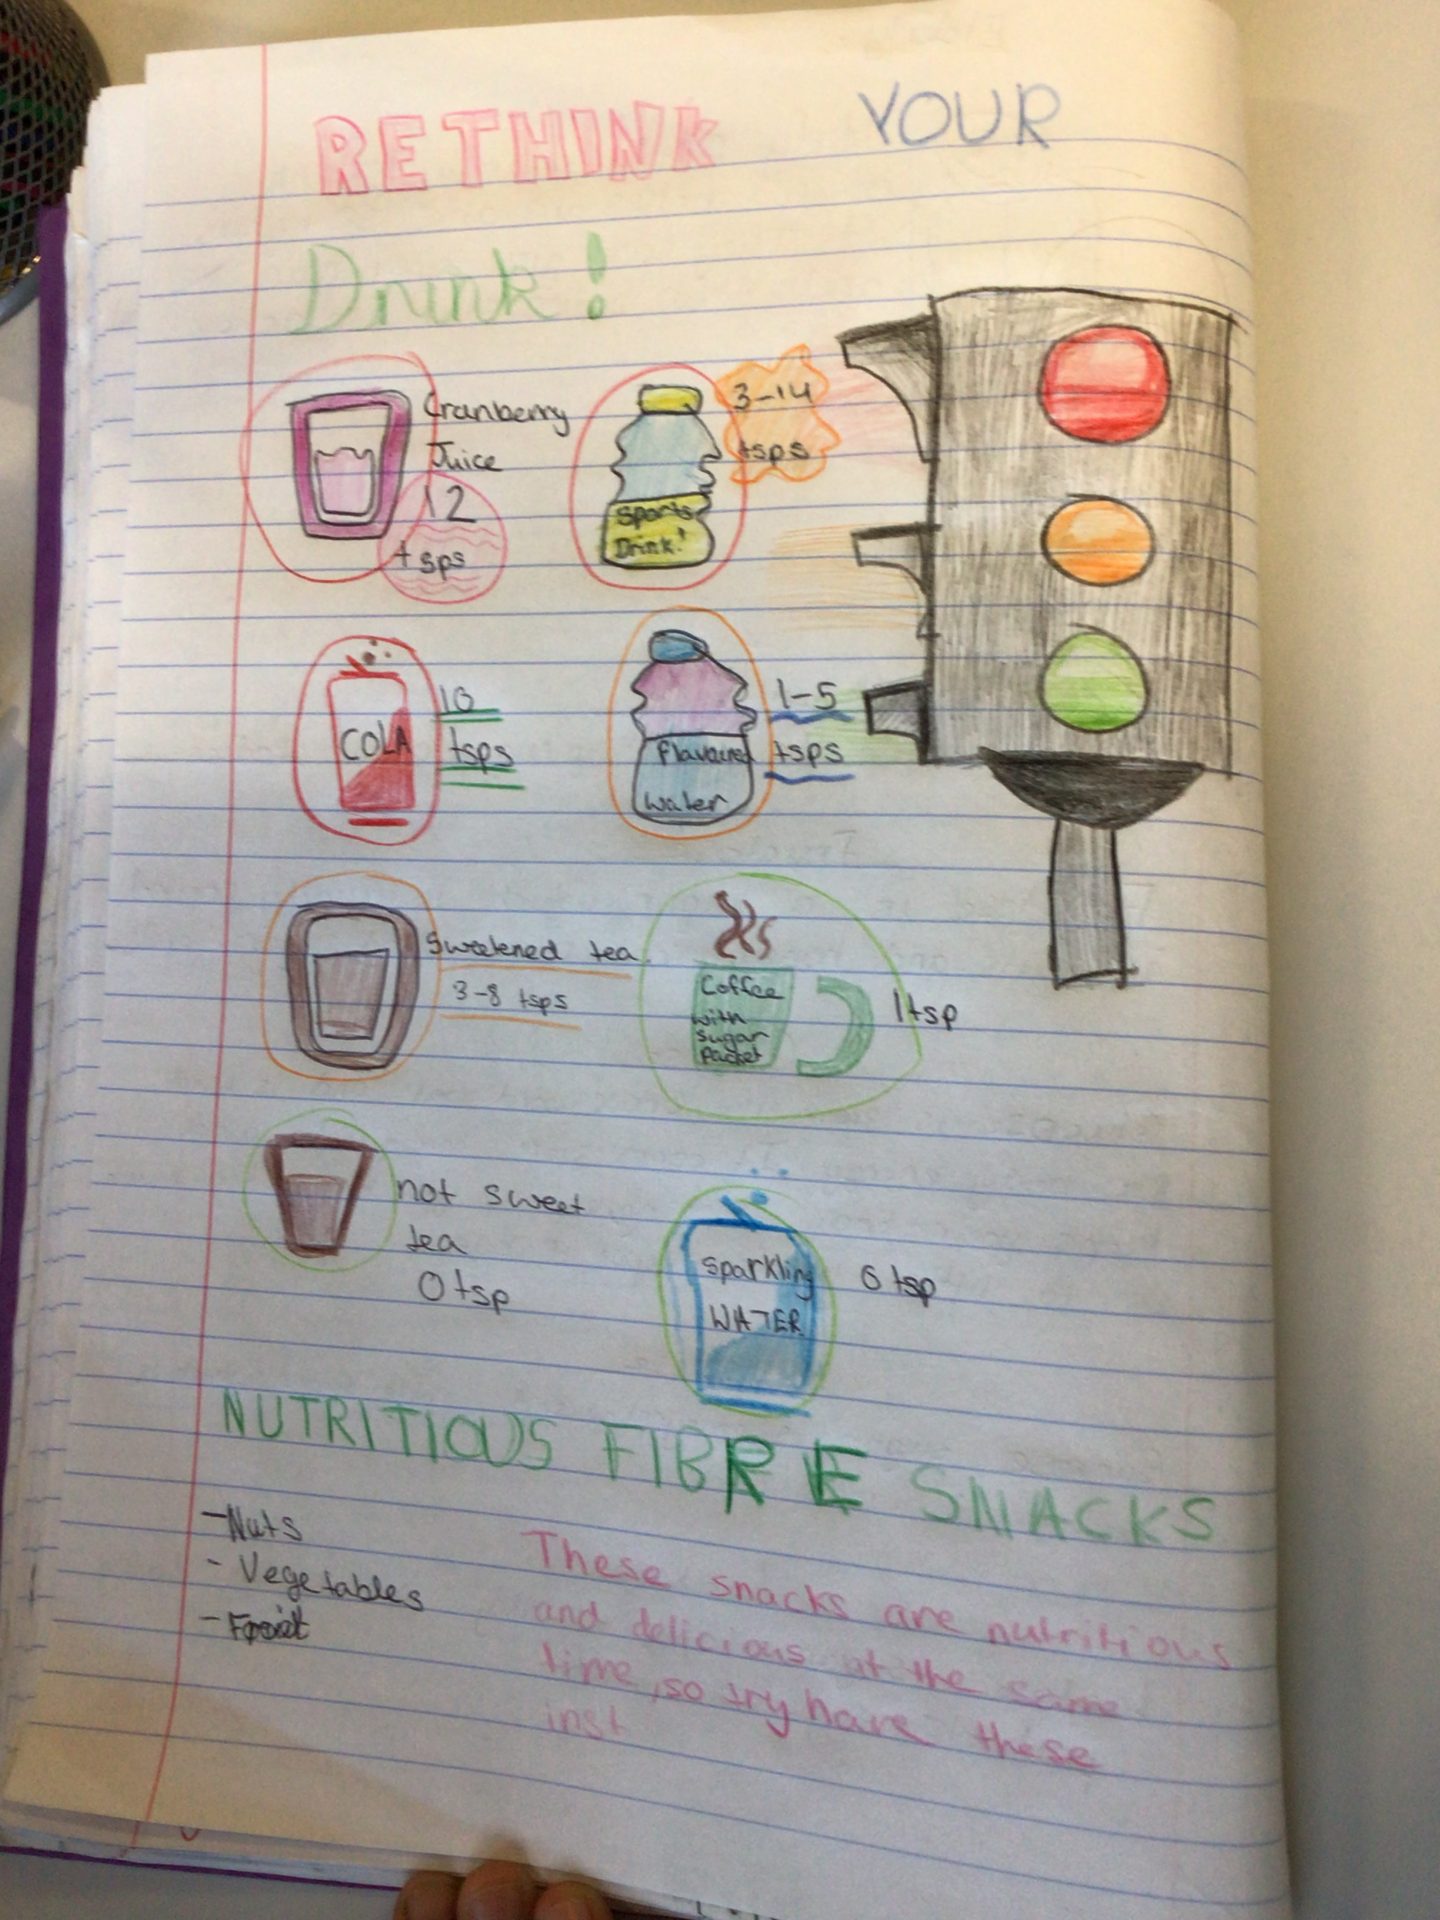 RETHINK YOUR
Drink!
Cranberry
Juice
12
tsps
Sports
Drink!
3-14
tsps
COLA
10
tsps
Flavoured
water
1-5
tsps
Sweetened tea
3-8 tsps
Coffee
with
sugar
packet
1 tsp
not sweet
tea
0 tsp
Sparkling
WATER
0 tsp
NUTRITIOUS FIBRE SNACKS
-Nuts
- Vegetables
-
These snacks are nutritious
and delicious at the same
time, so try have these
inst